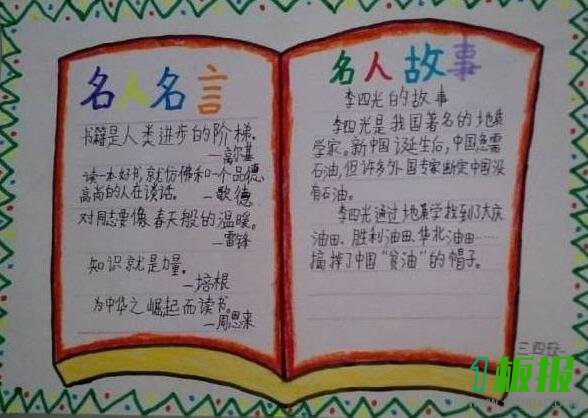 名人名言
书籍是人类进步的阶梯。
—高尔基
读一本好书,就仿佛和一个品德
高尚的人在谈话。—歌德
对同志要像春天般的温暖。
—雷锋
知识就是力量。
—培根
为中华之崛起而读书。
—周恩来
名人故事
李四光的故事
李四光是我国著名的地质
学家。新中国诞生后,中国急需
石油,但许多外国专家断定中国没
有石油。
李四光通过地质学找到了大庆
油田、胜利油田、华北油田……
摘掉了中国“贫油”的帽子。
三四
1板报
WWW.1BANBAO.COM